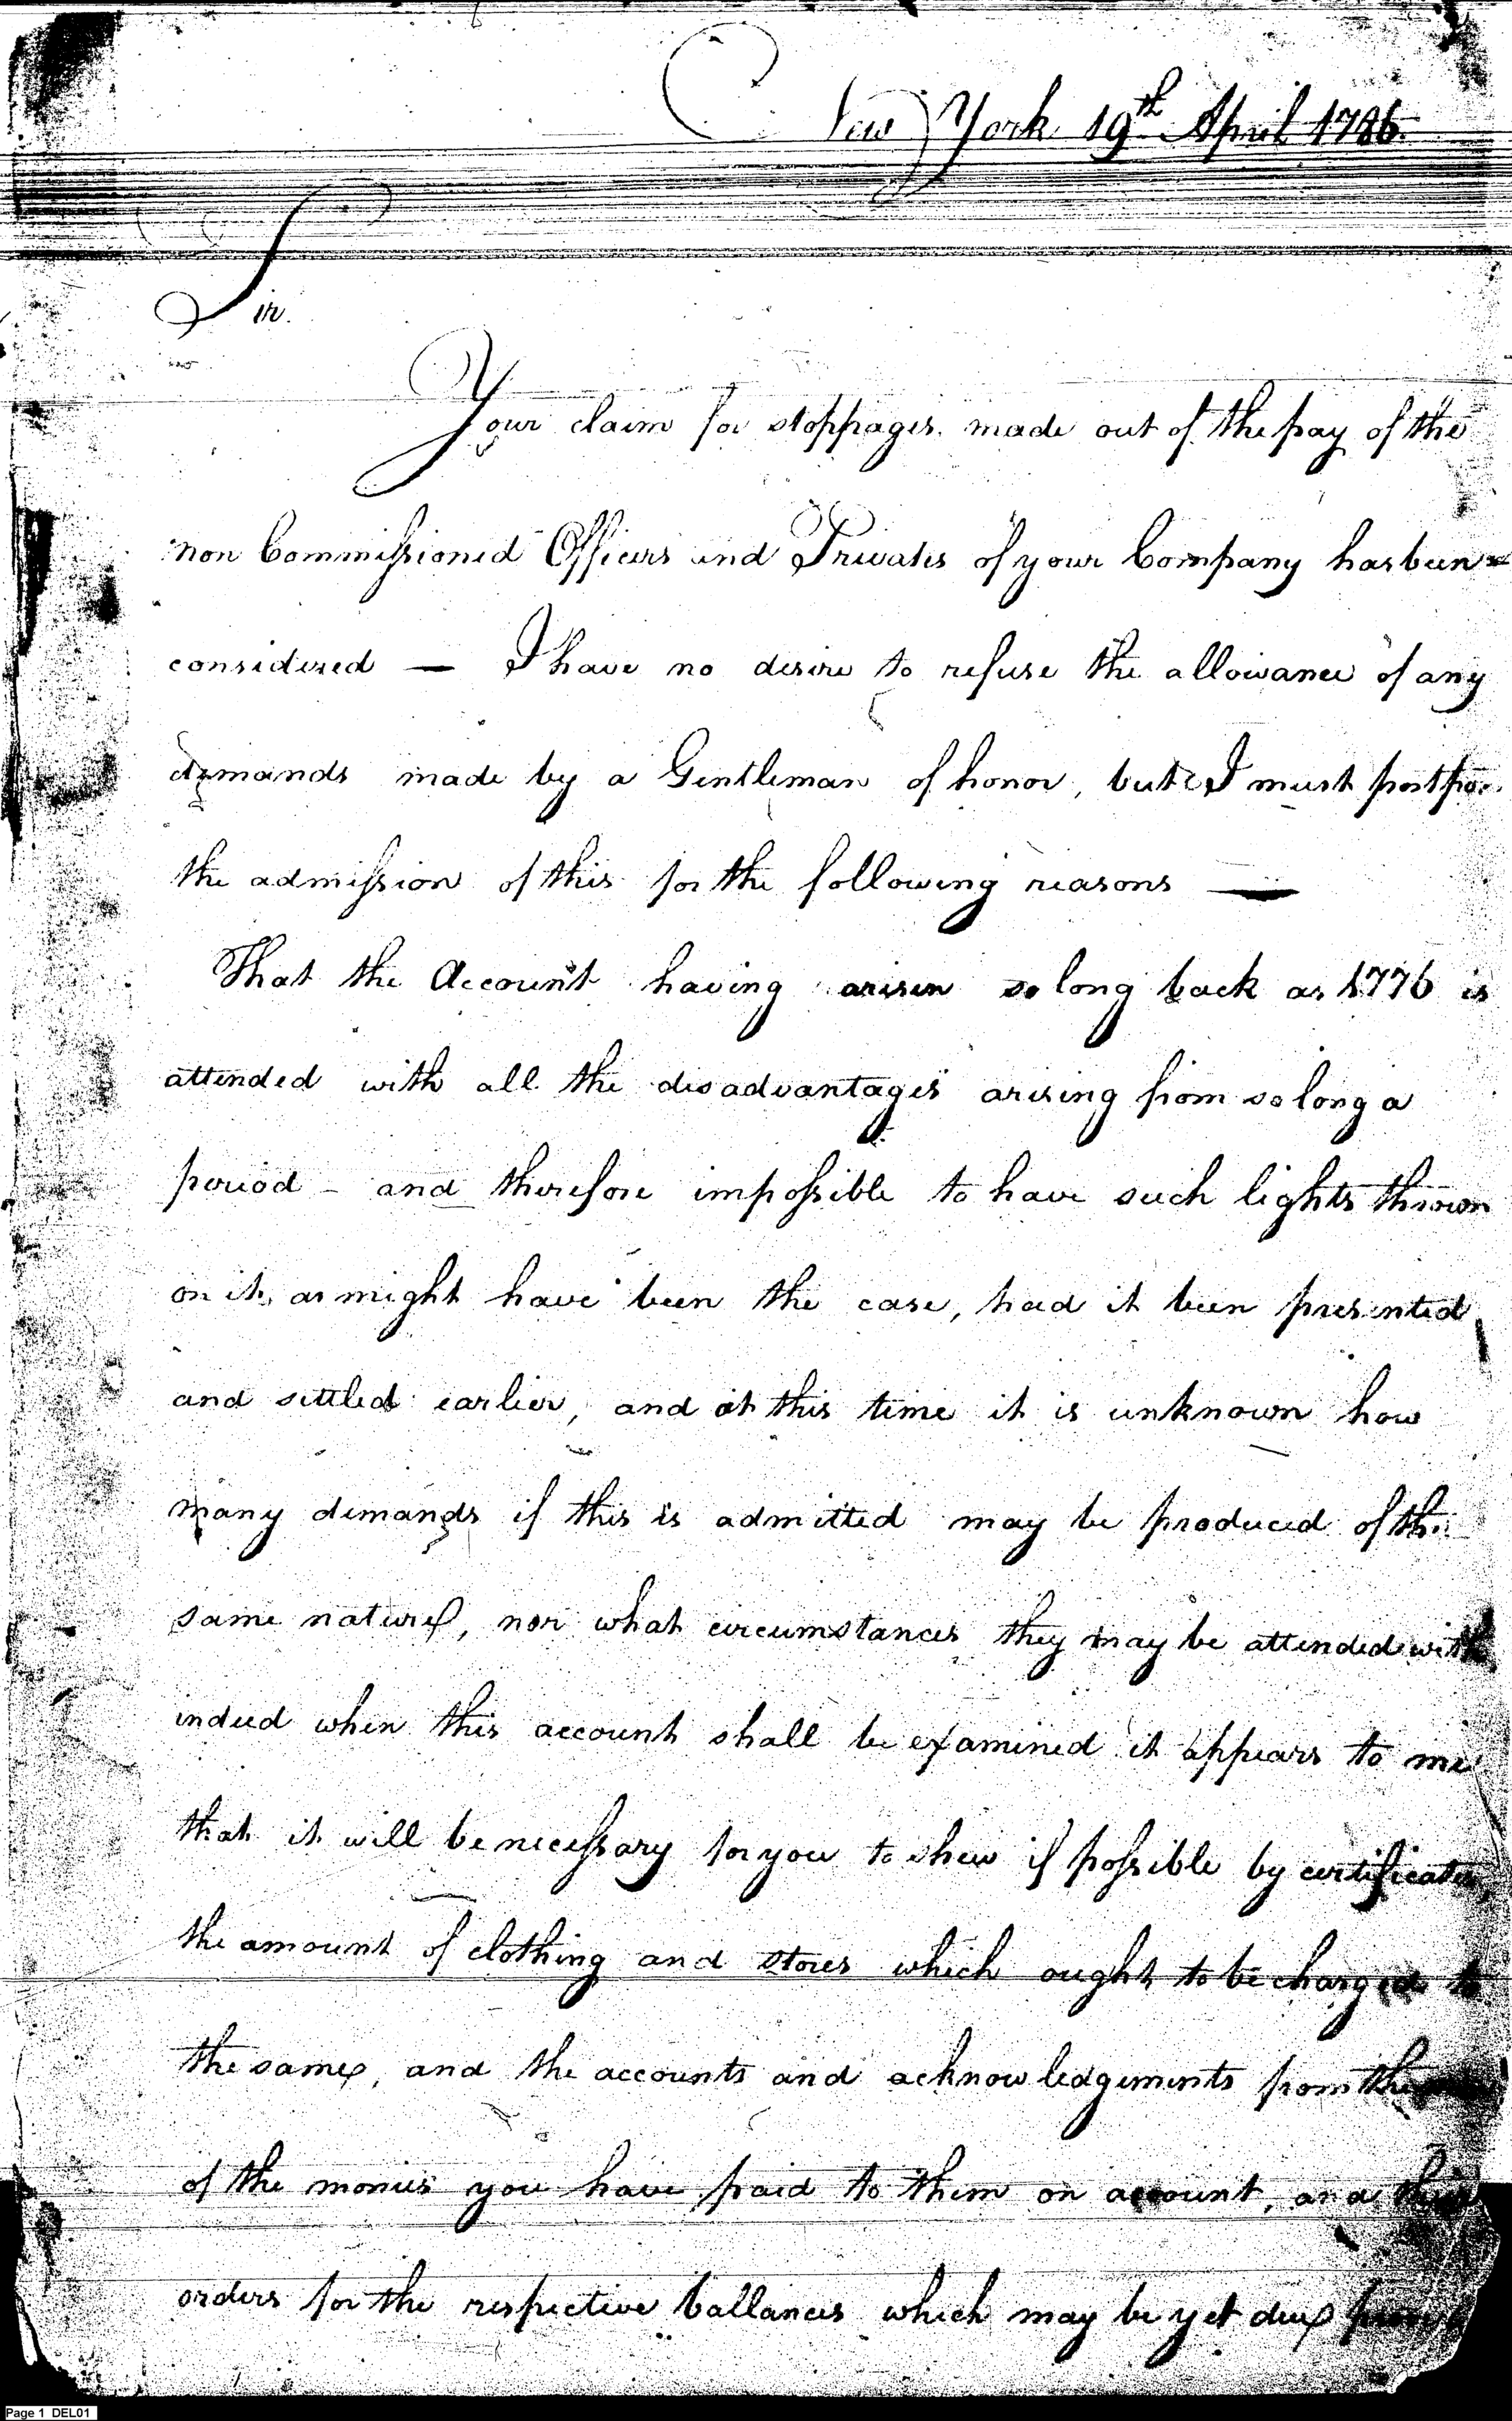 New York 19th April 1786.
Sir.
Your claim for stoppages made out of the pay of the
non Commissioned Officers and Privates of your Company has been
considered — I have no desire to refuse the allowance of any
demands made by a Gentleman of honor, but I must
the admission of this for the following reasons —
That the Account having arisen so long back as 1776 is
attended with all the disadvantages arising from so long a
period - and therefore impossible to have such lights thrown
on it, as might have been the case, had it been presented
and settled earlier, and at this time it is unknown how
many demands if this is admitted may be produced of the
same nature, nor what circumstances they may be attended with
indeed when this account shall be examined it appears to me
that it will be necessary for you to shew if possible by certificates,
the amount of clothing and stores which ought to be charged to
the same, and the accounts and acknowledgements from
of the monies you have paid to them on account, and
orders for the respective ballances which may be yet due
Page 1 DEL01